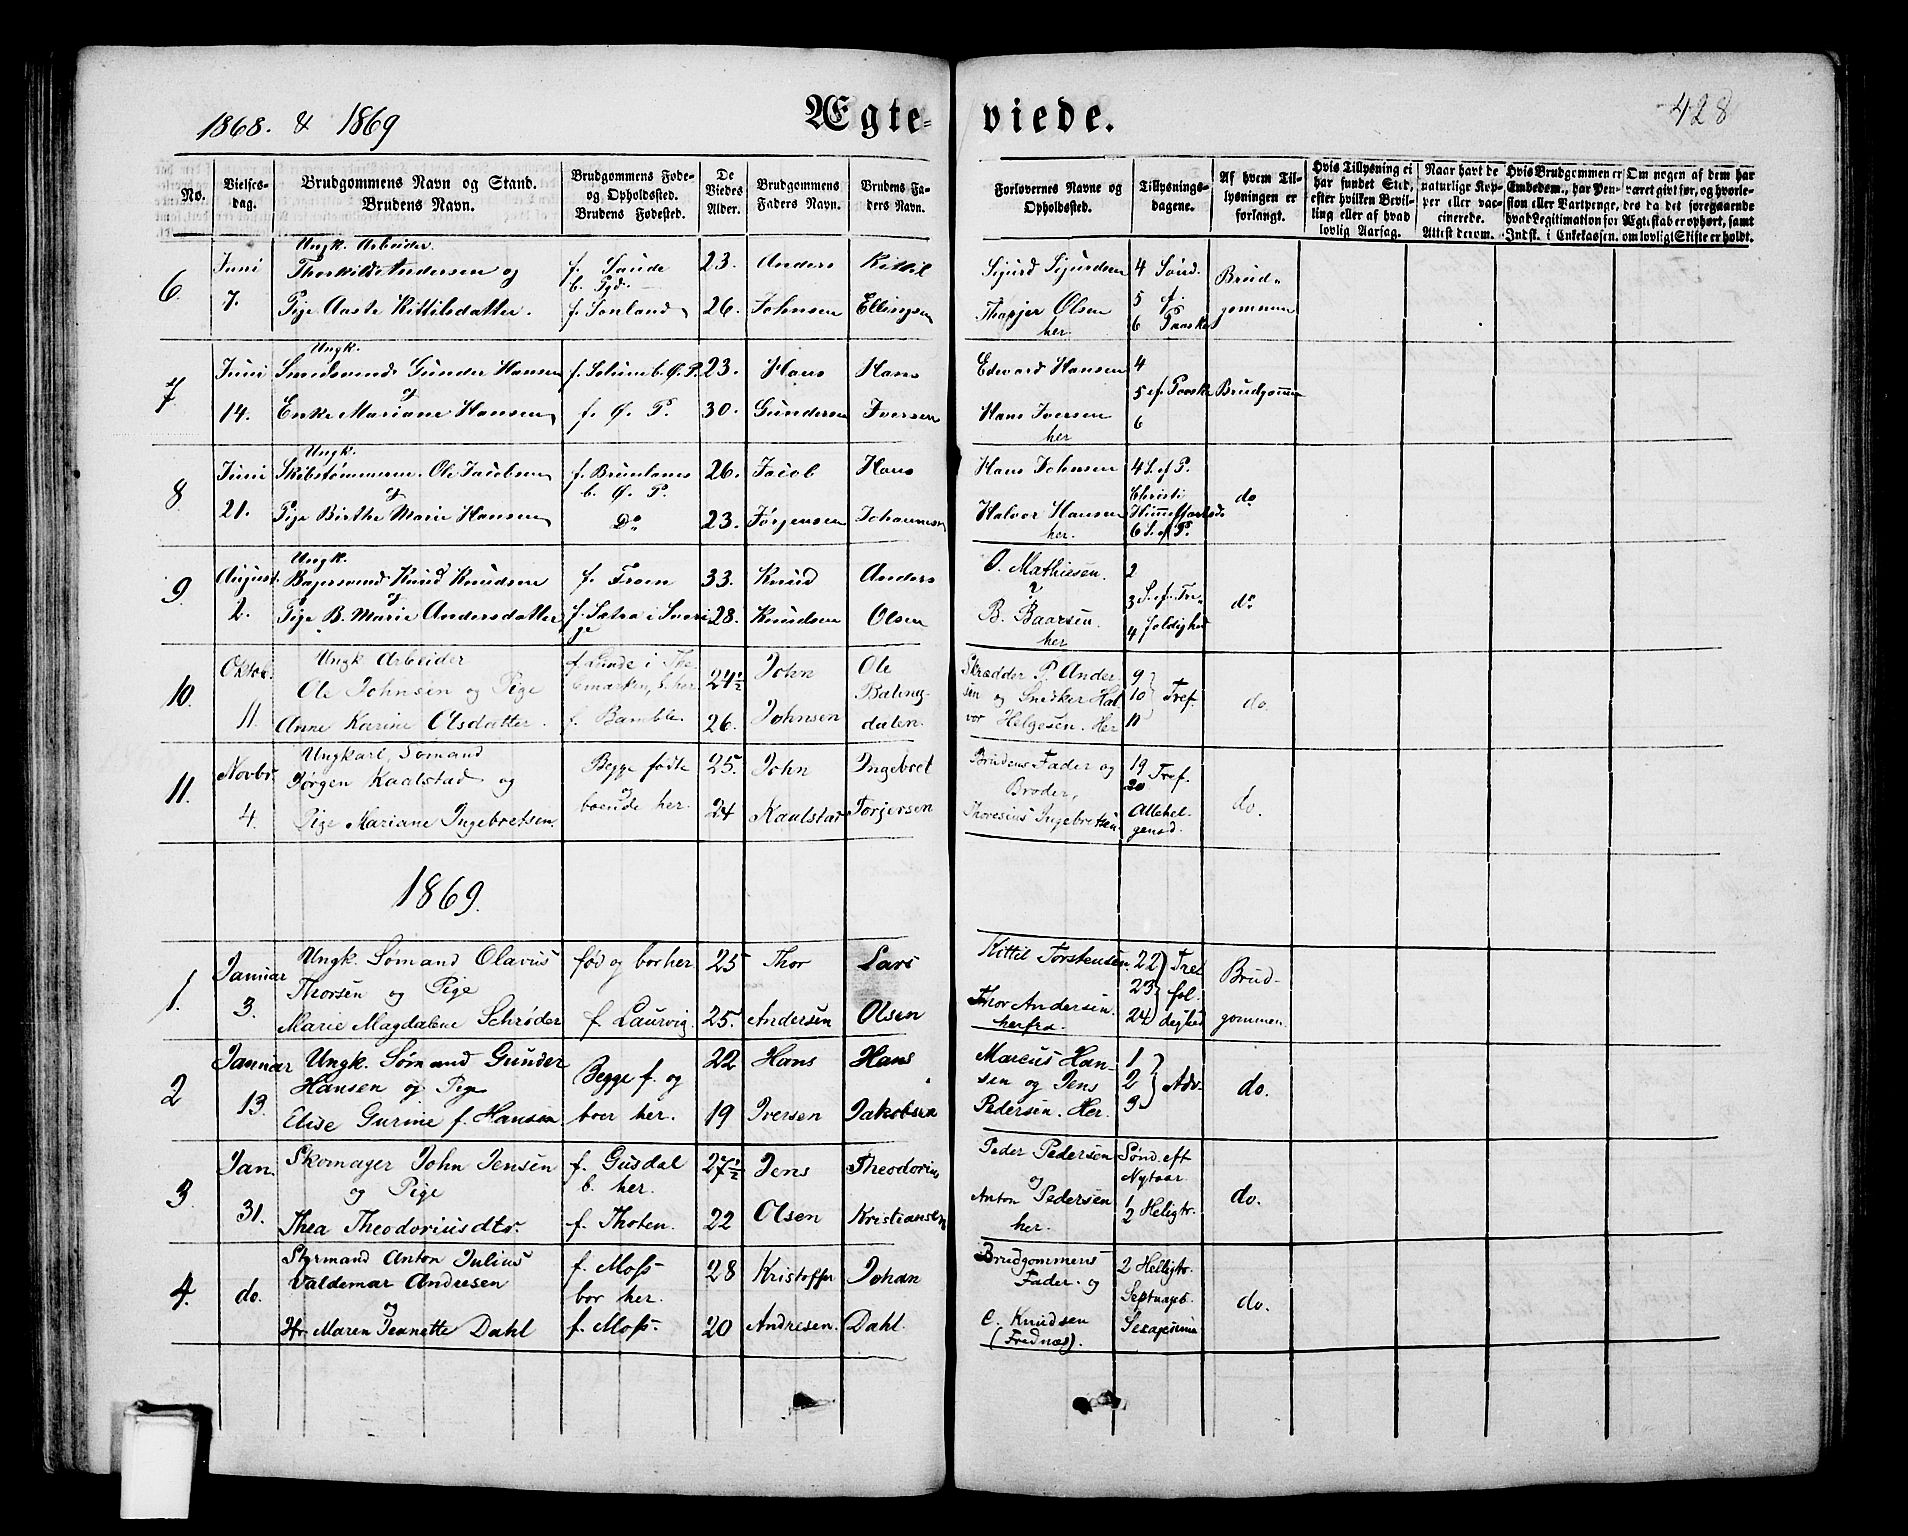 1868. & 1869
Ægte-
viede.
428
No.
Vielses-
dag.
Brudgommens Navn og Stand.
Brudens Navn.
Brudgommens Føde-
og Opholdssted.
Brudens Fødested.
De
Viedes
Alder.
Brudgommens
Faders Navn.
Brudens Fa-
ders Navn.
Forlovernes Navne og
Opholdssted.
Tillysnings-
dagene.
Af hvem Til-
lysningen er
forlangt.
Hvis Tillysning ei
har fundet Sted,
efter hvilken Bevil-
ling eller af hvad
lovlig Aarsag.
Naar havt de
naturlige Kop-
per eller vac-
cinerede.
Attest derom.
Hvis Brudgommen er
Embedsm., har Pen-
sion eller Vartpenge,
hvad Legitimation for
Indsk. i Enkekassen.
Om nogen af dem har
været givt før, og hvorle-
des da det foregaaende
Ægteskab er ophørt, samt
om lovligt Skifte er holdt.
6.
Juni
7.
Ungk. Arbeider
Thorkild Andersen og
Pige Aaste Kittilsdatter.
f. Saude
f. Sonland
23.
26.
Anders
Johnsen
Kittil
Ellingsen
Sigurd Sigurdsen
Olsen
her
4 Sönd.
5 f.
6 Paaske
Brud-
gommen
7.
Juni
14.
Ungk.
Smedsvend Gunder Hansen
og
Enke Mariane Hansen
f. Solum b. Ø. P.
f. Ø. P.
23.
30.
Hans
Gundersen
Hans
Iversen
Edvard Hansen
Hans Iversen
her
4
5 ef. Paaske
6
Brudgommen
8
Juni
21.
Ungk.
Skibstømmerm. Ole Jacobsen
og
Pige Birthe Marie Hansen
f. Brunlanes
b. Ø. P.
Do
26.
23.
Jacob
Jørgensen
Hans
Johannesen
Hans Johnsen
Halvor Hansen
her.
4 S. ef P.
Christi
Himmelfartsd.
6 S. ef P.
do
9
August
2.
Ungk.
Bagersvend Knud Knudsen
og
Pige B. Marie Andersdatter
f. From
f. Satra i Sveri-
ge
33.
28.
Knud
Knudsen
Anders
Olsen
O. Mathiesen.
B. Baarsen.
her
2
3 S. ef. Tre-
4 foldighed
do
10
Oktob.
11.
Ungk Arbeider
Ole Johnsen og Pige
Anne Karine Olsdatter.
f. Lunde i The-
lemarken, b. her.
f. Bamble.
24½
26.
John
Johnsen
Ole
Baling-
dalen.
Skrædder P. Ander
sen og Snedker Hal
vor Helgesen. Her
9
10 Tref.
11
do.
11.
Novbr.
4.
Ungkarl, Sømand
Jørgen Kaalstad og
Pige Mariane Ingebretsen.
Begge fødte
og
boende her.
25.
24
John
Kaalstad
Ingebret
Torjersen
Brudens Fader og
Broder,
Thoresius Ingebretsen
19 Tref.
20
Allehel-
gensd.
do.
1869.
1.
Januar
3.
Ungk. Sømand Olavus
Thorsen og Pige
Marie Magdalene Schrøder
fød og bor her
f. Laurvig.
25
25.
Thor
Andersen
Lars
Olsen
Kittil Torstensen.
Thor Andersen.
herfra.
22 Tref
23 fol-
24 dighed
Brud-
gommen.
2
Januar
13.
Ungk. Sømand Gunder
Hansen og Pige
Elise Gurine f. Hansen
Begge f. og
boer her.
22
19
Hans
Iversen
Hans
Jakobsen
Marcus Han-
sen og Jens
Pedersen. Her.
1
2 Adv.
3
do.
3.
Jan.
31.
Skomager John Jensen
og Pige
Thea Theodoriusdtr.
f. Gusdal
b. her.
f. Thoten.
27½
22
Jens
Olsen
Theodorius
Kristiansen
Peder Pedersen
og
Anton Pedersen
her.
Sønd. eft
Nytaar
1
2 Heligtr.
do.
4.
do.
Styrmand Anton Julius
Valdemar Andresen
og
Maren Jeanette Dahl
f. Moss
bor her.
f. Moss.
28
20
Kristoffer
Andresen.
Johan
Dahl.
Brudgommens
Fader og
C. Knudsen
(Frednæs).
2 Helligtr.
Septuages.
Sexagesima
do.